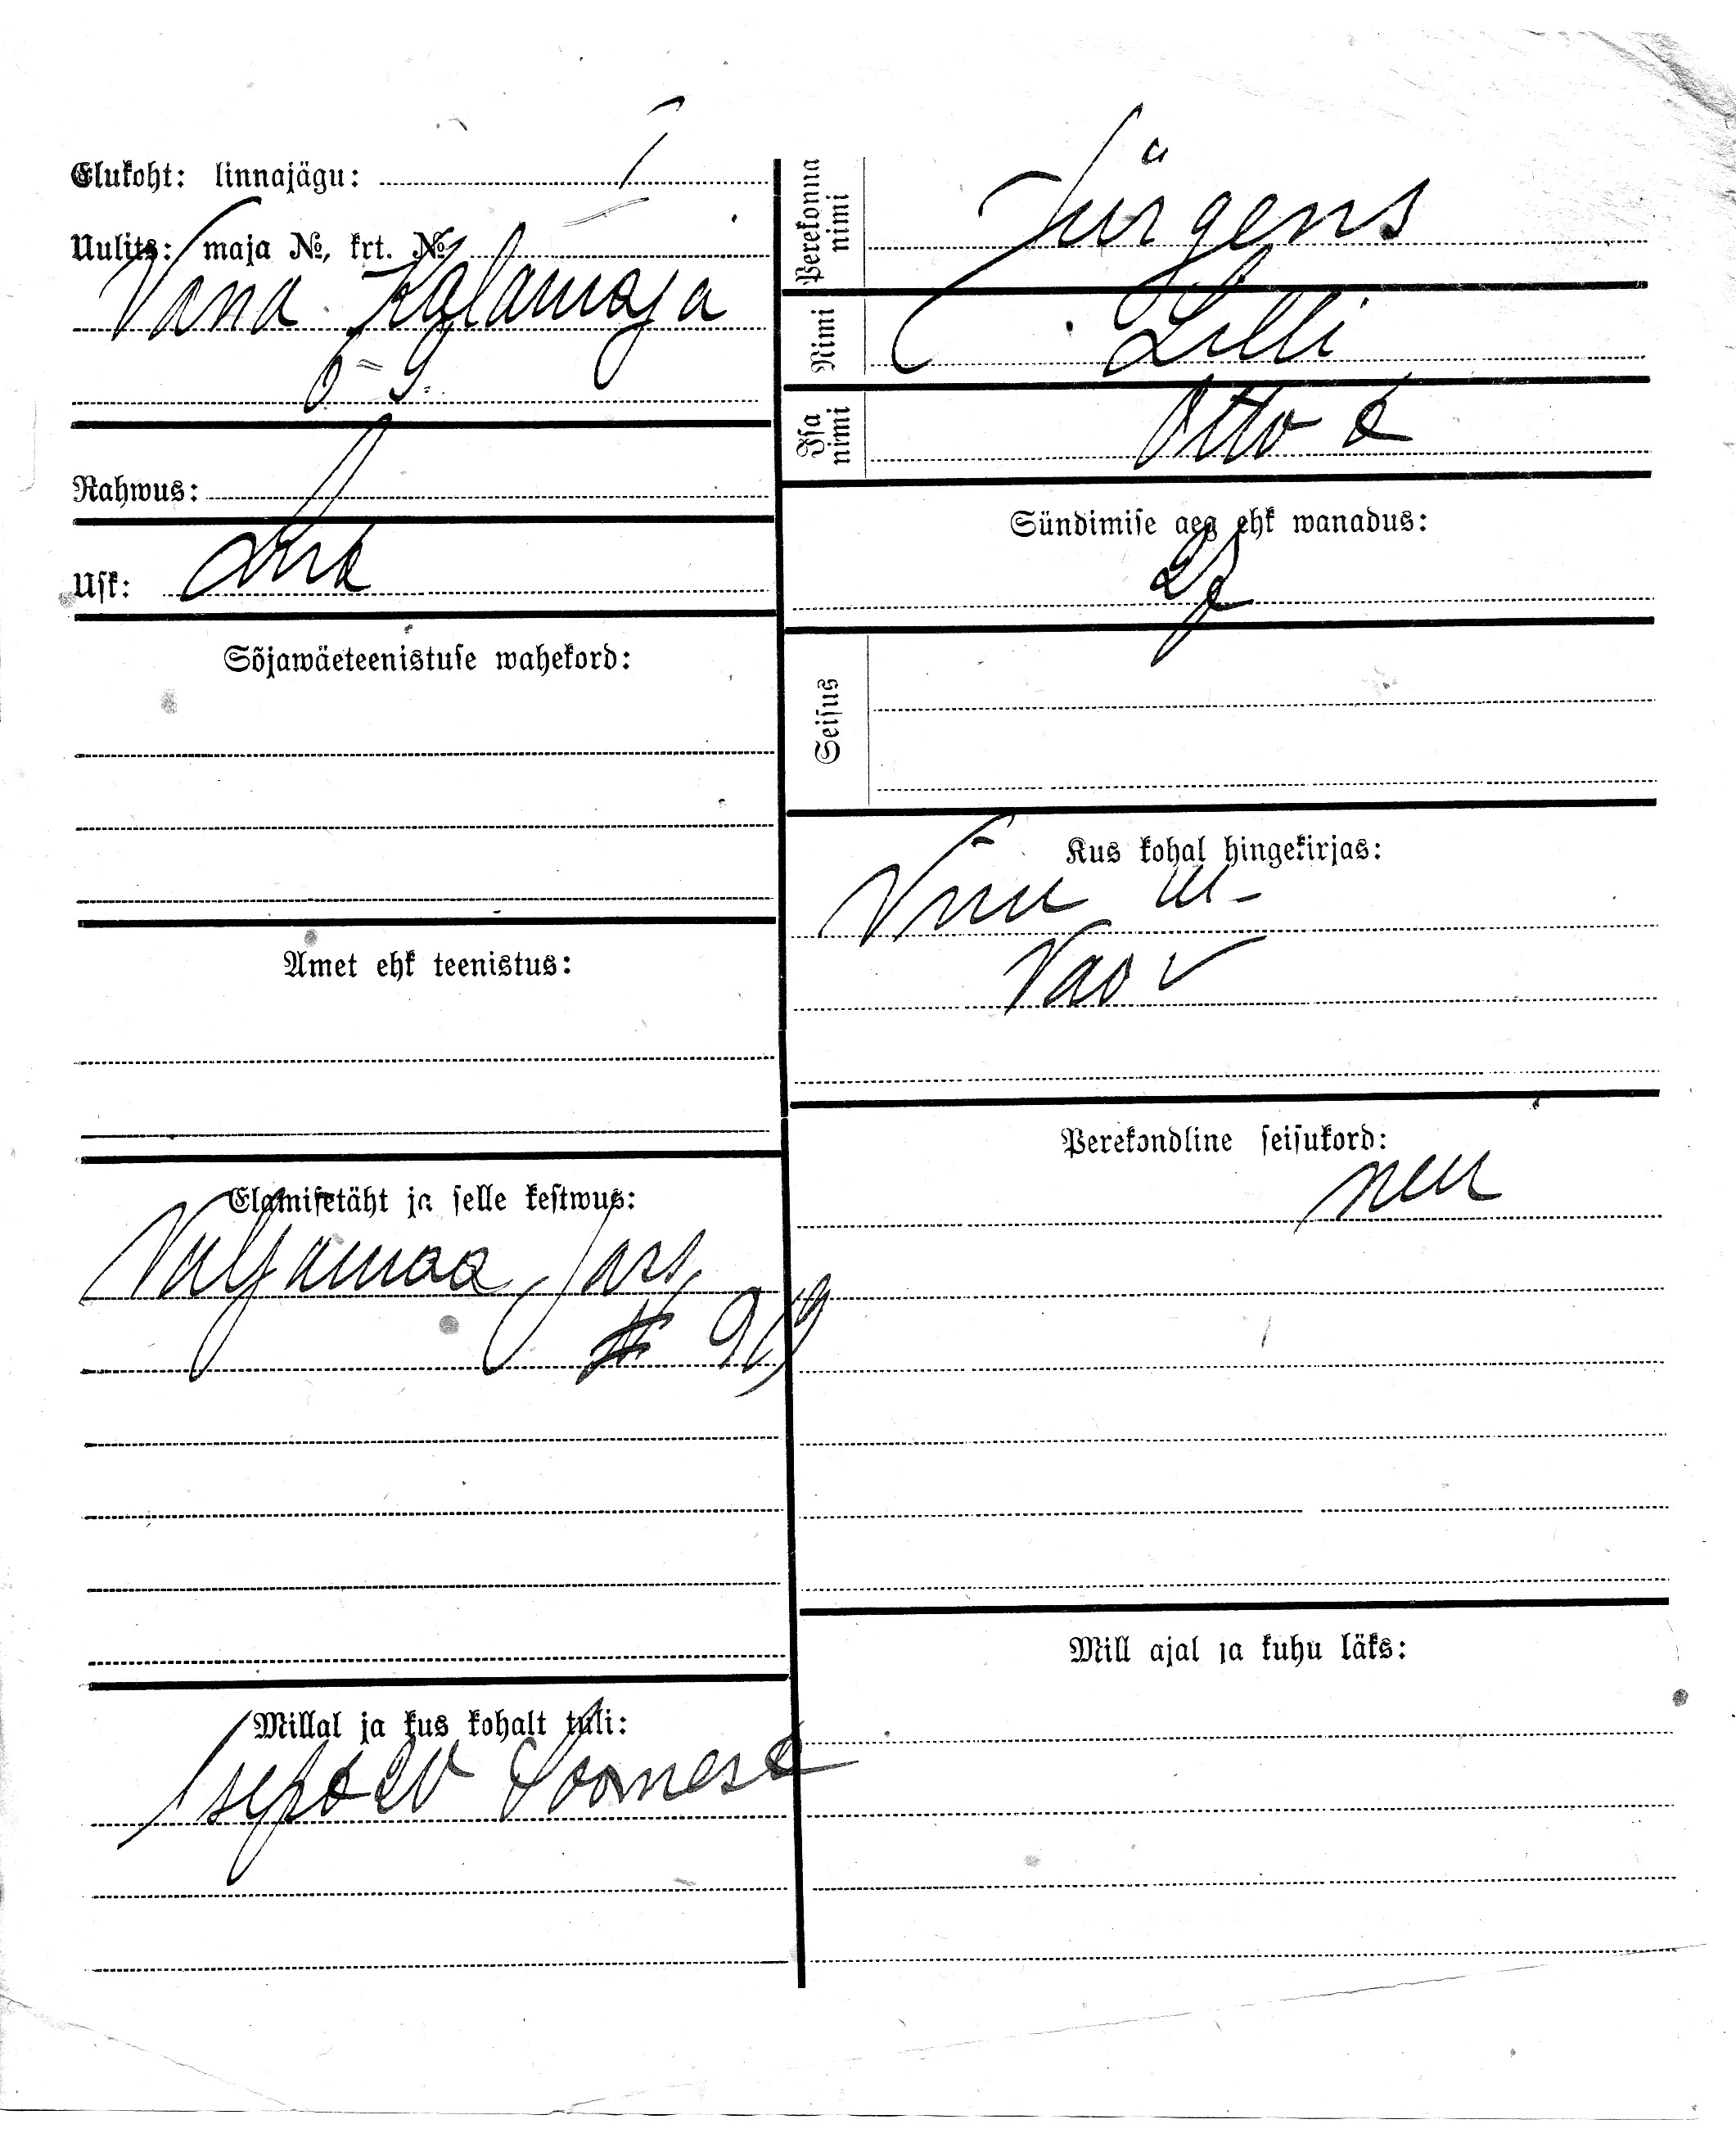 Elukoht: linnajägu: I
Uulits: maja №, krt. №
Vana Kalamaja
6=9
Rahwus:
Usk: Lut
Sõjawäeteenistuse wahekord:
Amet ehk teenistus:
Elamisetäht ja selle kestwus:
919
Millal ja kus kohalt tuli:
Perekonna nimi Jürgens
Nimi Lilli
Isa nimi Otto t
Sündimise aeg ehk wanadus:
Seisus
Kus kohal hingekirjas:
Viru m-
Vao v
Perekondline seisukord:
neiu
Mill ajal ja kuhu läks: